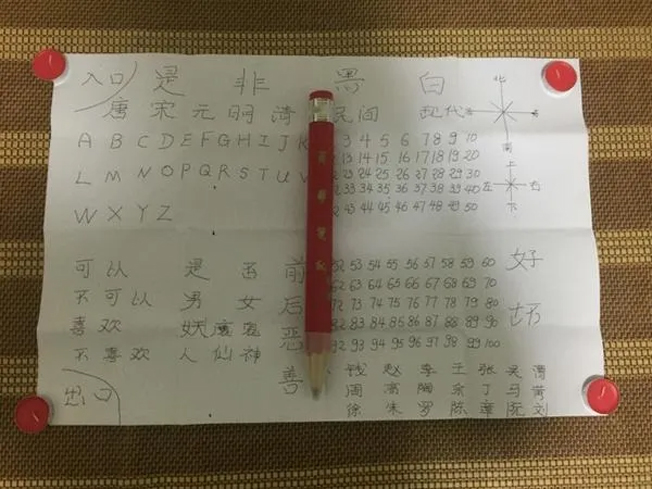 入口 是 非 黑 白 北
唐 宋 元 明 清 民间 现代
南
A B C D E F G H I J K 3 4 5 6 7 8 9 10
L M N O P Q R S T U V 13 14 15 16 17 18 19 20
23 24 25 26 27 28 29 30
上
左 右
下
W X Y Z 33 34 35 36 37 38 39 40
43 44 45 46 47 48 49 50
可以 是 否 前 52 53 54 55 56 57 58 59 60 好
不可以 男 女 后 62 63 64 65 66 67 68 69 70
72 73 74 75 76 77 78 79 80 坏
喜欢 妖 魔 恶 82 83 84 85 86 87 88 89 90
不喜欢 人 仙 神 92 93 94 95 96 97 98 99 100
善 钱 赵 李 王 张 吴
出口 周 高 陶 余 丁 马 黄
徐 朱 罗 陈 章 阮 刘